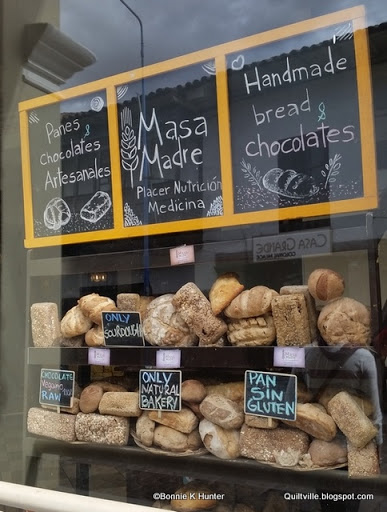 Panes
&
Chocolates
Artesanales
Masa
Madre
Placer Nutrición
Medicina
Handmade
bread &
chocolates
CASA GRANDE
ONLY
SOURDOUGH
CHOCOLATE
RAW
ONLY
NATURAL
BAKERY
PAN
SIN
GLUTEN
©Bonnie K Hunter
Quiltville.blogspot.com